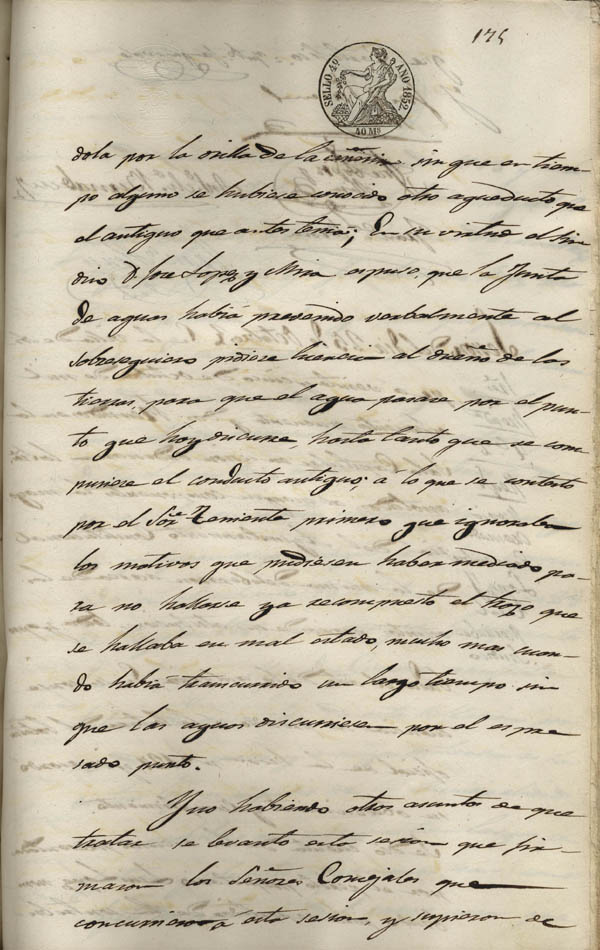 175
SELLO 4º AÑO 1852.
40 Ms
dola por la orilla de la sin que en tiem-
po alguno se hubiese conocido otro aqueducto que
el antiguo que antes tenia; En su virtud el Sin
dico D. Jose Lopez y Mira espuso, que la Junta
de aguas habiá prevenido verbalmente al
sobresequiero pidiese licencia al dueño de las
tierras, para que el agua pasase por el pun-
to que hoy discurre, hasta tanto que se com
pusiese el conducto antiguo; á lo que se contestó
por el Sor. Teniente primero que ignoraba
los motivos que pudiesen haber mediado pa-
ra no hallarse ya recompuesto el trozo que
se hallaba en mal estado, mucho mas cuan-
do habiá transcurrido un largo tiempo sin
que las aguas discurriesen por el espre
sado punto.
Y no habiendo otros asuntos de que
tratar se levantó esta sesion que fir-
maron los Señores Concejales que
concurrieron á esta sesion, y supieron de